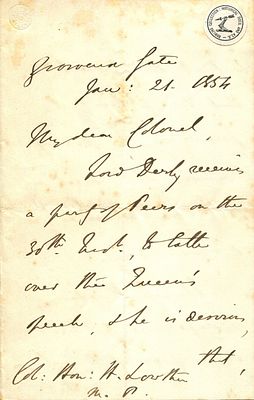 Grosvenor Gate
Jan: 21. 1854
My dear Colonel,
Lord Derby receives
a party of Peers on the
30th Inst, to talk
over the Queen's
Speech, & he is desirous,
that,
Col: Hon: H. Lowther
M. P.